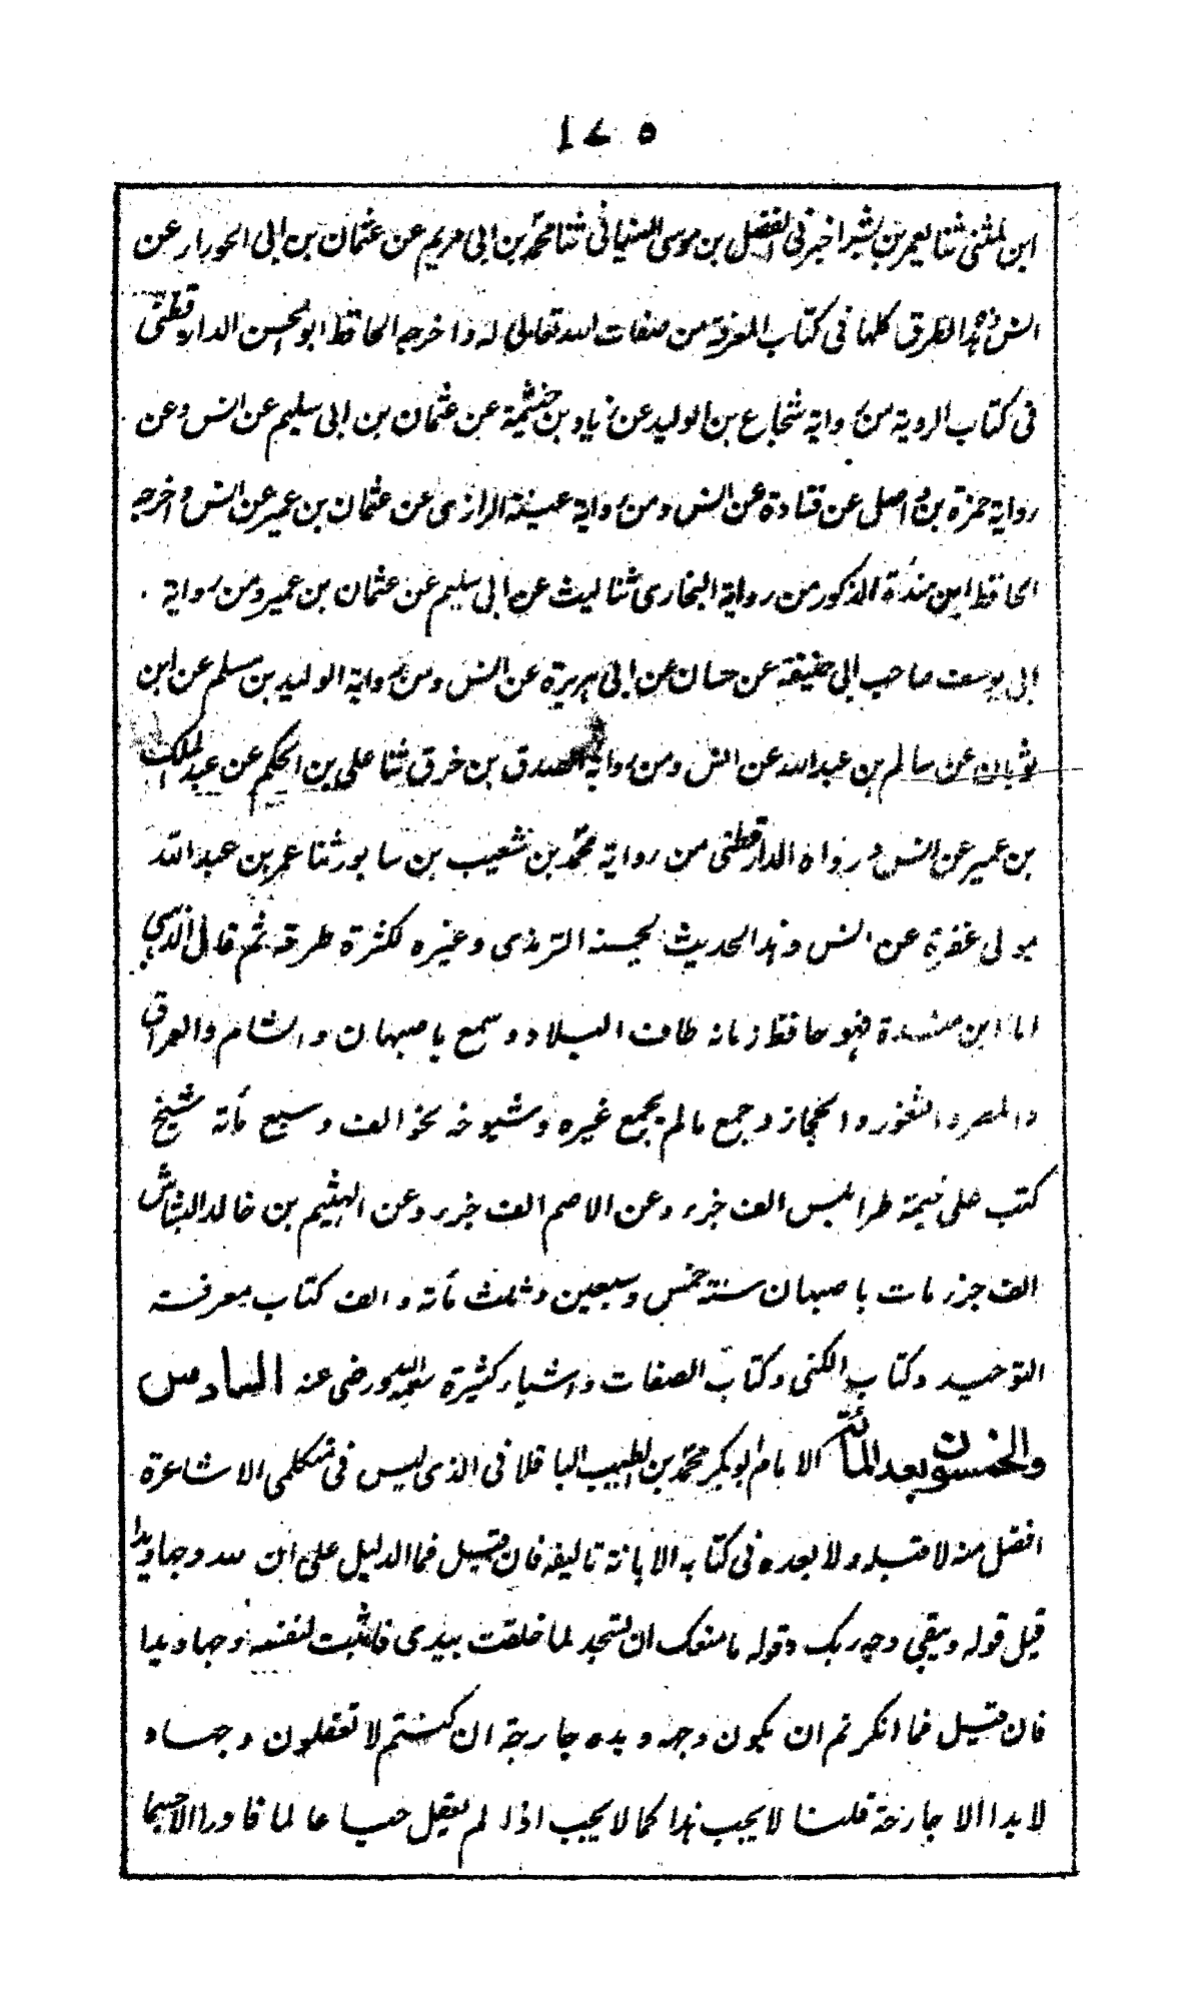 ١٧٥
ابن المثنى ثنا يعمر بن بشر اخبرنى الفضل بن موسى السينانى ثنا محمد بن ابى مريم عن عثمان بن ابى الحورار عن
انس وهذه الطرق كلها فى كتاب المعرفة من صفات الله تعالى له واخرجه الحافظ ابو الحسن الدارقطنى
فى كتاب الروية من رواية شجاع بن الوليد عن زياد بن خيثمة عن عثمان بن ابى سليم عن انس وعن
رواية حمزة بن واصل عن قتادة عن انس ومن رواية عنبسة الرازى عن عثمان بن عمير عن انس واخرجه
الحافظ ابن مندة المذكور من رواية البخارى ثنا ليث عن ابى سليم عن عثمان بن عمير ومن رواية
ابى يوسف صاحب ابى حنيفة عن حسان عن ابى هريرة عن انس ومن رواية الوليد بن مسلم عن ابن
ثوبان عن سالم بن عبد الله عن انس ومن رواية الصدق بن خرق ثنا على بن الحكم عن عبد الملك
بن عمير عن انس ورواه الدارقطنى من رواية محمد بن شعيب بن سابور ثنا عمر بن عبد الله
مولى غفرة عن انس وهذا الحديث لحسنه الترمذى وغيره لكثرة طرقه ثم قال الذهبى
اما ابن منسدة فهو حافظ زمانه طاف البلاد وسمع باصبهان والشام والعراق
والمصر والثغور والحجاز وجمع مالم يجمع غيره وشيوخه نحو الف وسبع مأته شيخ
كتب على خيثمة طرابلس الف جزء وعن الاصم الف جزء وعن الهيثم بن خالد الشاش
الف جزء مات باصبهان سنة خمس وسبعين وثلث مأته والف كتاب معرفة
التوحيد وكتاب الكنى وكتاب الصفات واشياء كثيرة رحمه الله ورضى عنه السادس
والخمسون بعد المأته الامام ابو بكر محمد بن الطيب الباقلانى الذى ليس فى متكلمى الاشاعرة
افضل منه لا قبله ولا بعده فى كتابه الابانة تاليفه فان قيل فما الدليل على ان لله وجها ويدا
قيل قوله ويبقى وجه ربك وقوله ما منعك ان تسجد لما خلقت بيدى فاثبت لنفسه وجها ويدا
فان قيل فما انكرتم ان يكون وجهه ويده جارحة ان كنتم لا تعقلون وجها و
لا يدا الا جارحة قلنا لا يجب هذا كما لا يجب اذا لم يعقل حيا عالما قادرا الا جسما